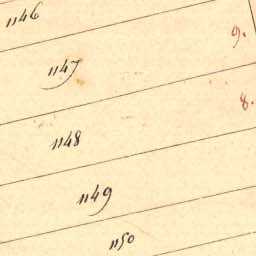 1146
9.
1147
8.
1148
1149
1150